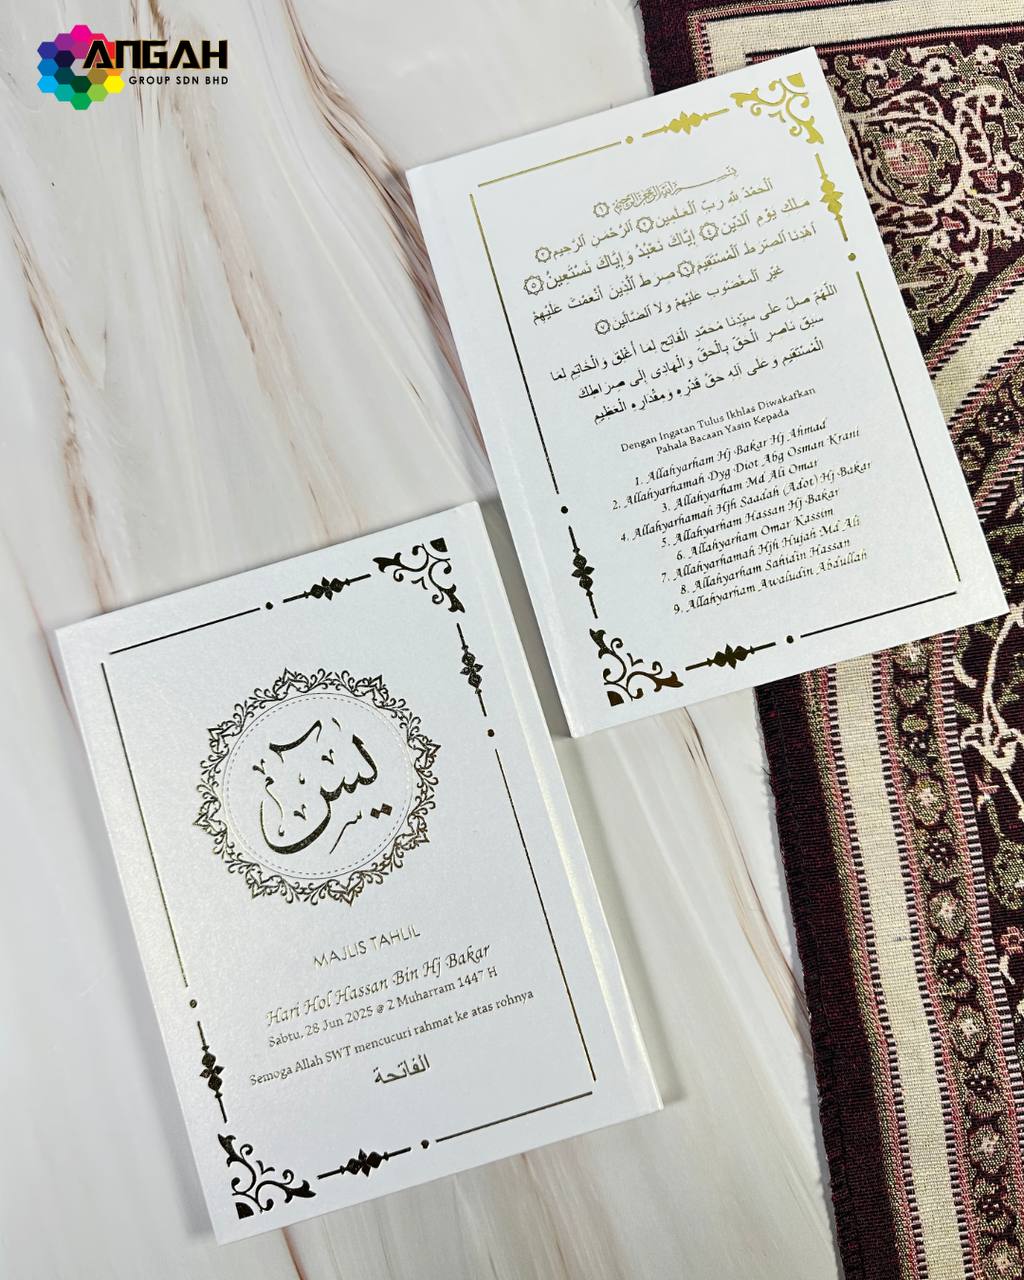 ANGAH
GROUP SDN BHD
بِسْمِ اللَّهِ الرَّحْمَٰنِ الرَّحِيمِ ١
اَلْحَمْدُ لِلَّهِ رَبِّ الْعَٰلَمِينَ ٢ الرَّحْمَٰنِ الرَّحِيمِ ٣
مَٰلِكِ يَوْمِ الدِّينِ ٤ إِيَّاكَ نَعْبُدُ وَإِيَّاكَ نَسْتَعِينُ ٥
اهْدِنَا الصِّرَٰطَ الْمُسْتَقِيمَ ٦ صِرَٰطَ الَّذِينَ أَنْعَمْتَ عَلَيْهِمْ
غَيْرِ الْمَغْضُوبِ عَلَيْهِمْ وَلَا الضَّآلِّينَ ٧
اللَّهُمَّ صَلِّ عَلَى سَيِّدِنَا مُحَمَّدٍ الْفَاتِحِ لِمَا أُغْلِقَ وَالْخَاتِمِ لِمَا
سَبَقَ نَاصِرِ الْحَقِّ بِالْحَقِّ وَالْهَادِى إِلَى صِرَاطِكَ
الْمُسْتَقِيمِ وَعَلَى آلِهِ حَقَّ قَدْرِهِ وَمِقْدَارِهِ الْعَظِيمِ
Dengan Ingatan Tulus Ikhlas Diwakafkan
Pahala Bacaan Yasin Kepada
1. Allahyarham Hj Bakar Hj Ahmad
2. Allahyarhamah Dyg Diot Abg Osman Krani
3. Allahyarham Md Ali Omar
4. Allahyarhamah Hjh Saadah (Adot) Hj Bakar
5. Allahyarham Hassan Hj Bakar
6. Allahyarham Omar Kassim
7. Allahyarhamah Hjh Hujah Md Ali
8. Allahyarham Sahidin Hassan
9. Allahyarham Awaludin Abdullah
يس
MAJLIS TAHLIL
Hari Hol Hassan Bin Hj Bakar
Sabtu, 28 Jun 2025 @ 2 Muharram 1447 H
Semoga Allah SWT mencucuri rahmat ke atas rohnya
الفاتحة